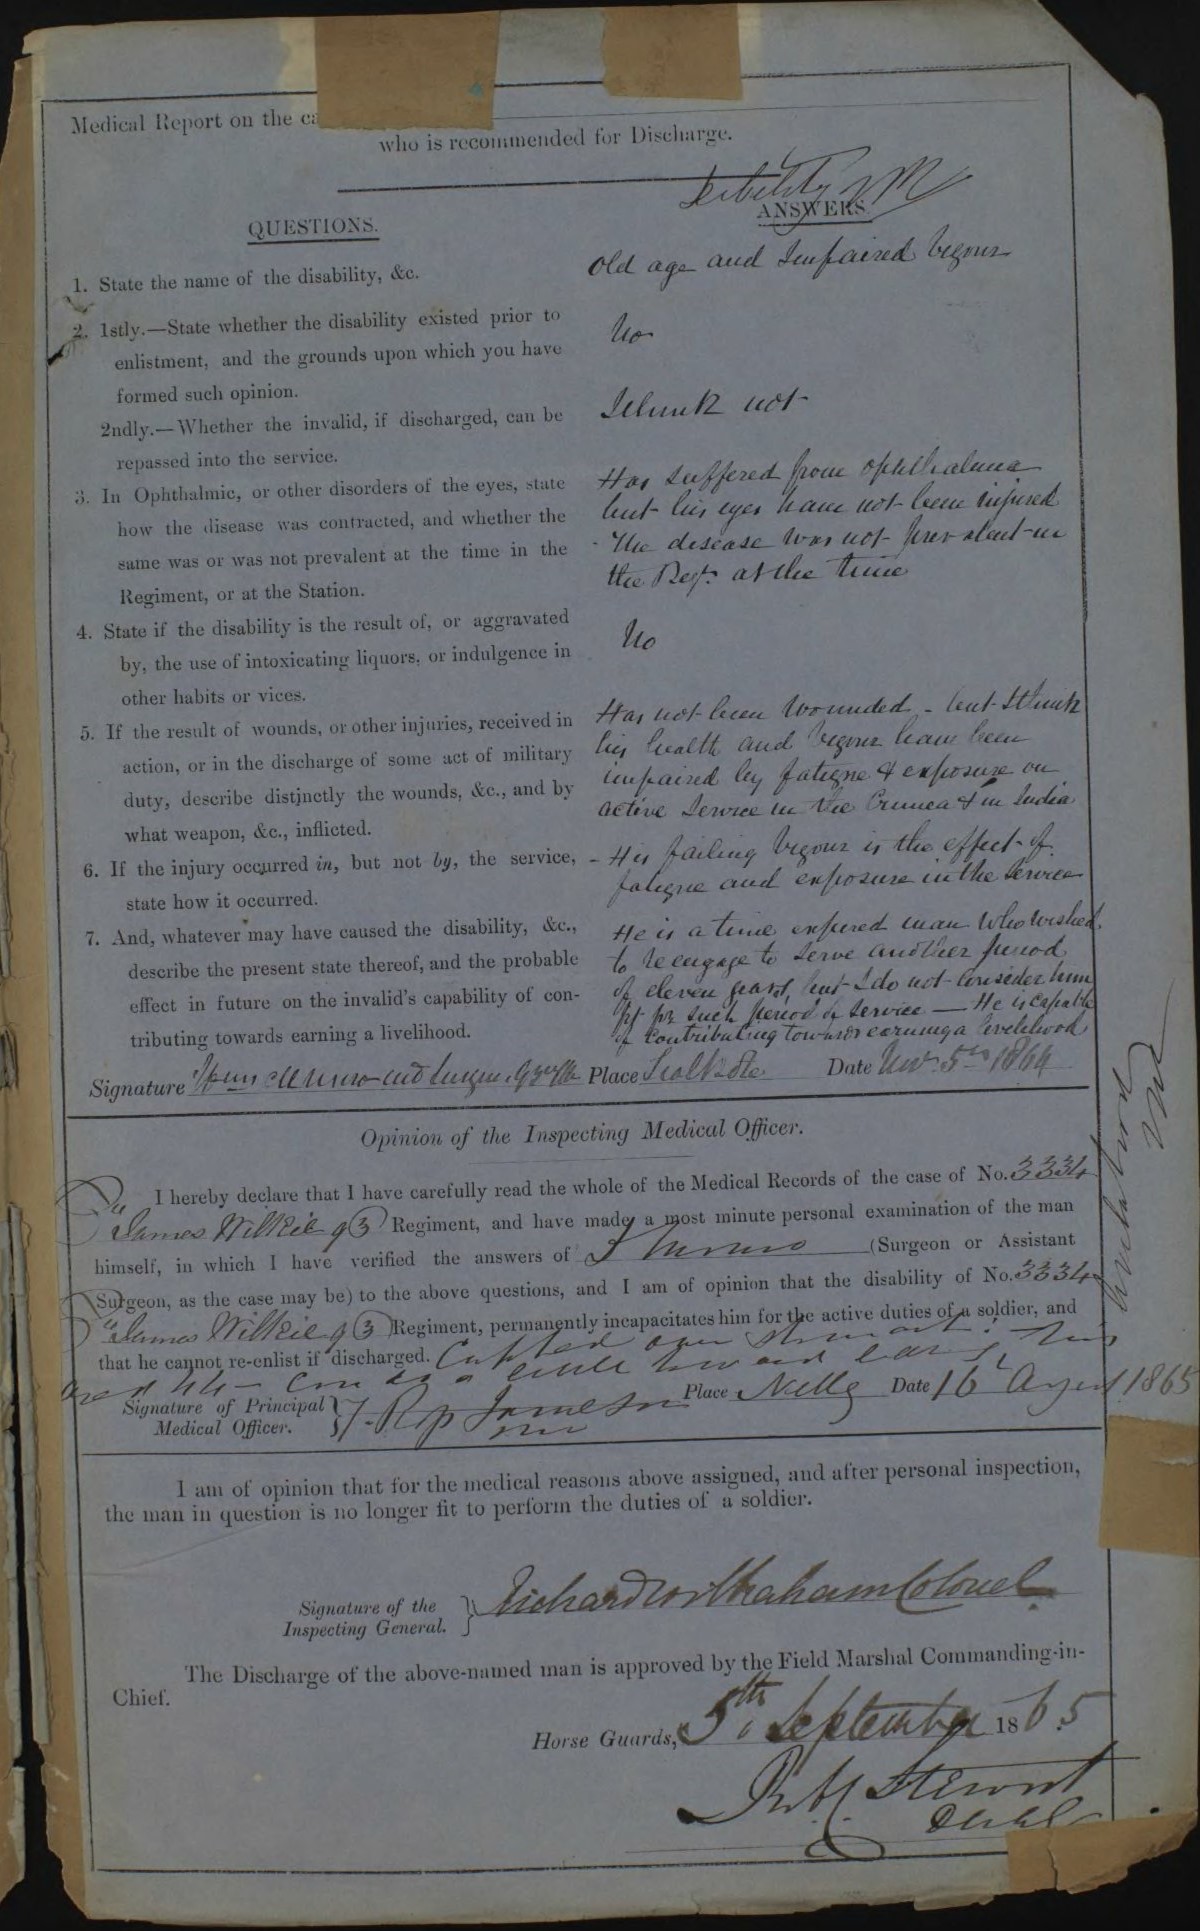 Medical Report on the ca
who is recommended for Discharge.
Debility
QUESTIONS.
ANSWERS.
1. State the name of the disability, &c.
Old age and Impaired Vigour
2. 1stly.—State whether the disability existed prior to
enlistment, and the grounds upon which you have
formed such opinion.
No
2ndly.—Whether the invalid, if discharged, can be
repassed into the service.
I think not
3. In Ophthalmic, or other disorders of the eyes, state
how the disease was contracted, and whether the
same was or was not prevalent at the time in the
Regiment, or at the Station.
Has suffered from Ophthalmia
but his eyes have not been injured
The disease was not prevalent in
the Regt. at the time
4. State if the disability is the result of, or aggravated
by, the use of intoxicating liquors, or indulgence in
other habits or vices.
No
5. If the result of wounds, or other injuries, received in
action, or in the discharge of some act of military
duty, describe distinctly the wounds, &c., and by
what weapon, &c., inflicted.
Has not been wounded - but I think
his health and vigour have been
impaired by fatigue & exposure on
active service in the Crimea & in India
6. If the injury occurred in, but not by, the service,
state how it occurred.
- His failing vigour is the effect of
fatigue and exposure in the service
7. And, whatever may have caused the disability, &c.,
describe the present state thereof, and the probable
effect in future on the invalid's capability of con-
tributing towards earning a livelihood.
He is a time expired man who wished
to reengage to serve another period
of eleven years, but I do not consider him
fit for such period of service — He is capable
of contributing towards earning a livelihood
Signature Munro MD Surgeon 93rd Place Sealkote Date Nov. 5th 1864
Opinion of the Inspecting Medical Officer.
I hereby declare that I have carefully read the whole of the Medical Records of the case of No. 3334
James Wilkie 93 Regiment, and have made a most minute personal examination of the man
himself, in which I have verified the answers of Munro (Surgeon or Assistant
Surgeon, as the case may be) to the above questions, and I am of opinion that the disability of No. 3334
James Wilkie 93 Regiment, permanently incapacitates him for the active duties of a soldier, and
that he cannot re-enlist if discharged.
can do a little toward earning his
livelihood
Signature of Principal
Medical Officer. } Jameson
Place Netley Date 16 August 1865
I am of opinion that for the medical reasons above assigned, and after personal inspection,
the man in question is no longer fit to perform the duties of a soldier.
Signature of the
Inspecting General. } Colonel
The Discharge of the above-named man is approved by the Field Marshal Commanding-in-
Chief.
Horse Guards, 5th September 1865
Stewart